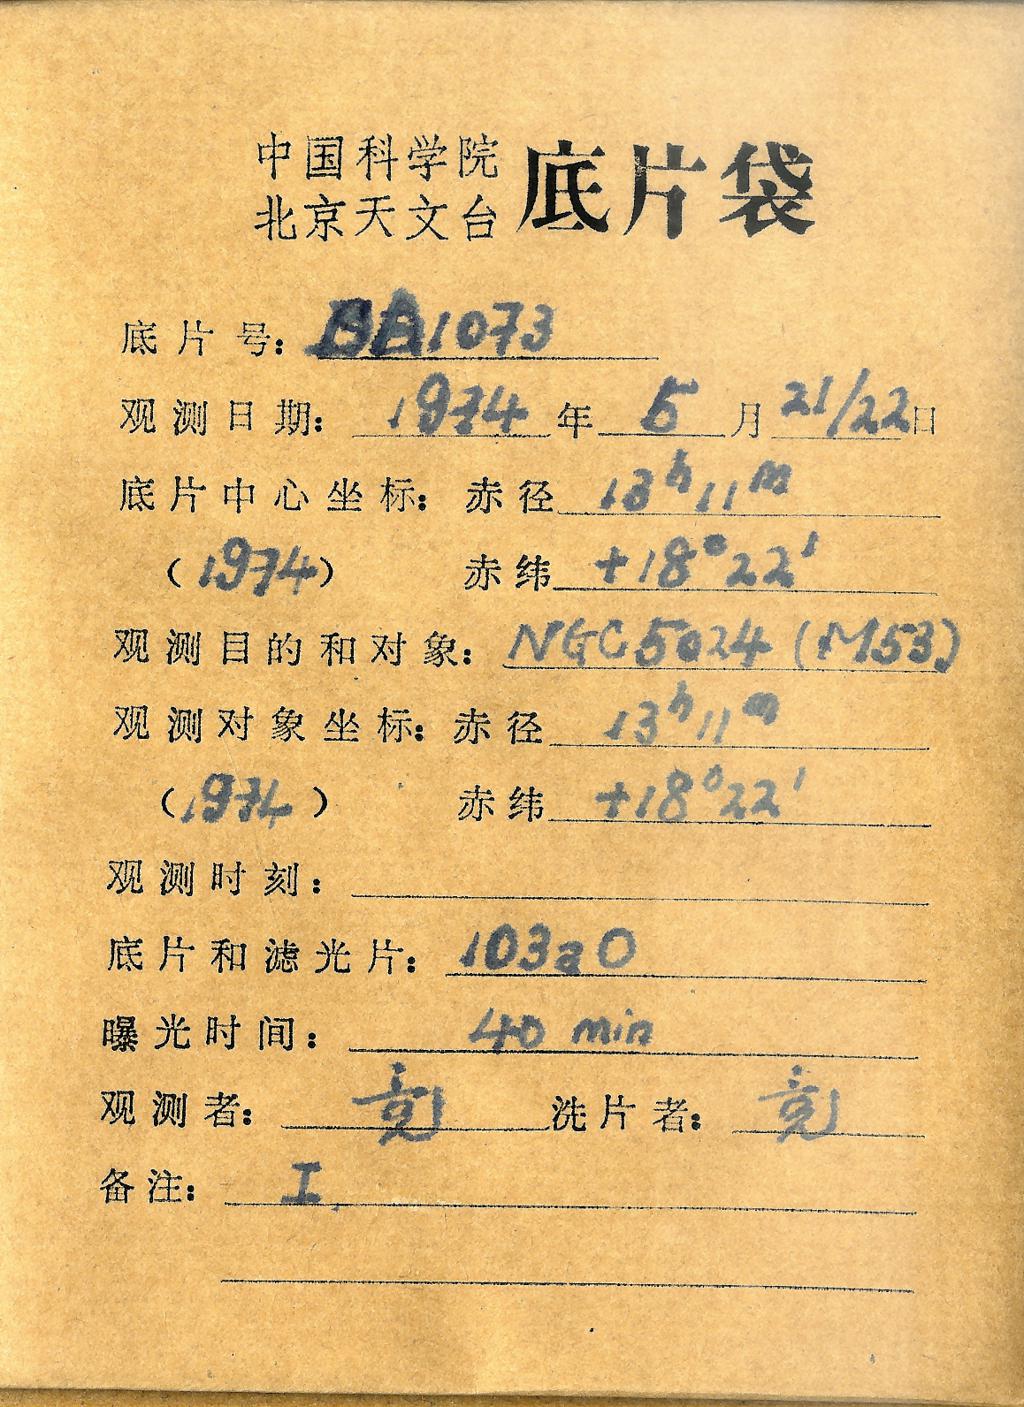 中国科学院
北京天文台 底片袋
底片号: BA1073
观测日期: 1974年 5 月 21/22日
底片中心坐标: 赤径 13h11m
(1974) 赤纬 +18°22'
观测目的和对象: NGC5024 (M53)
观测对象坐标: 赤径 13h11m
(1974) 赤纬 +18°22'
观测时刻:
底片和滤光片: 103aO
曝光时间: 40 min
观测者: 竞 洗片者: 竞
备注: I